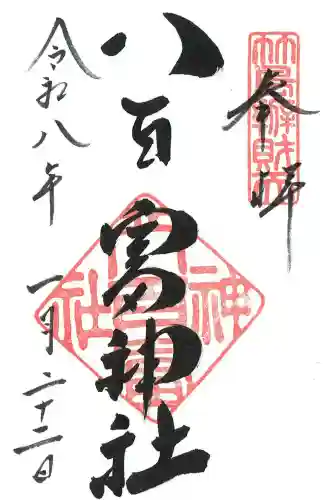 奉拝
八百富神社
令和八年一月二十二日
竹島弁財天
八百富神社